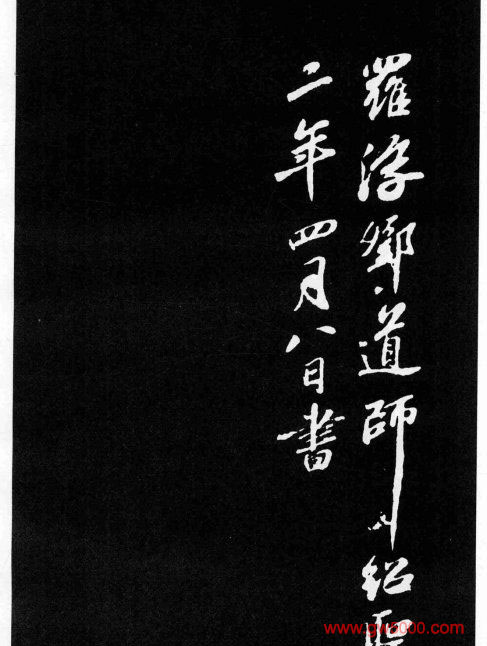 羅浮鄧道師紹聖
二年四月八日書
www.gw5000.com